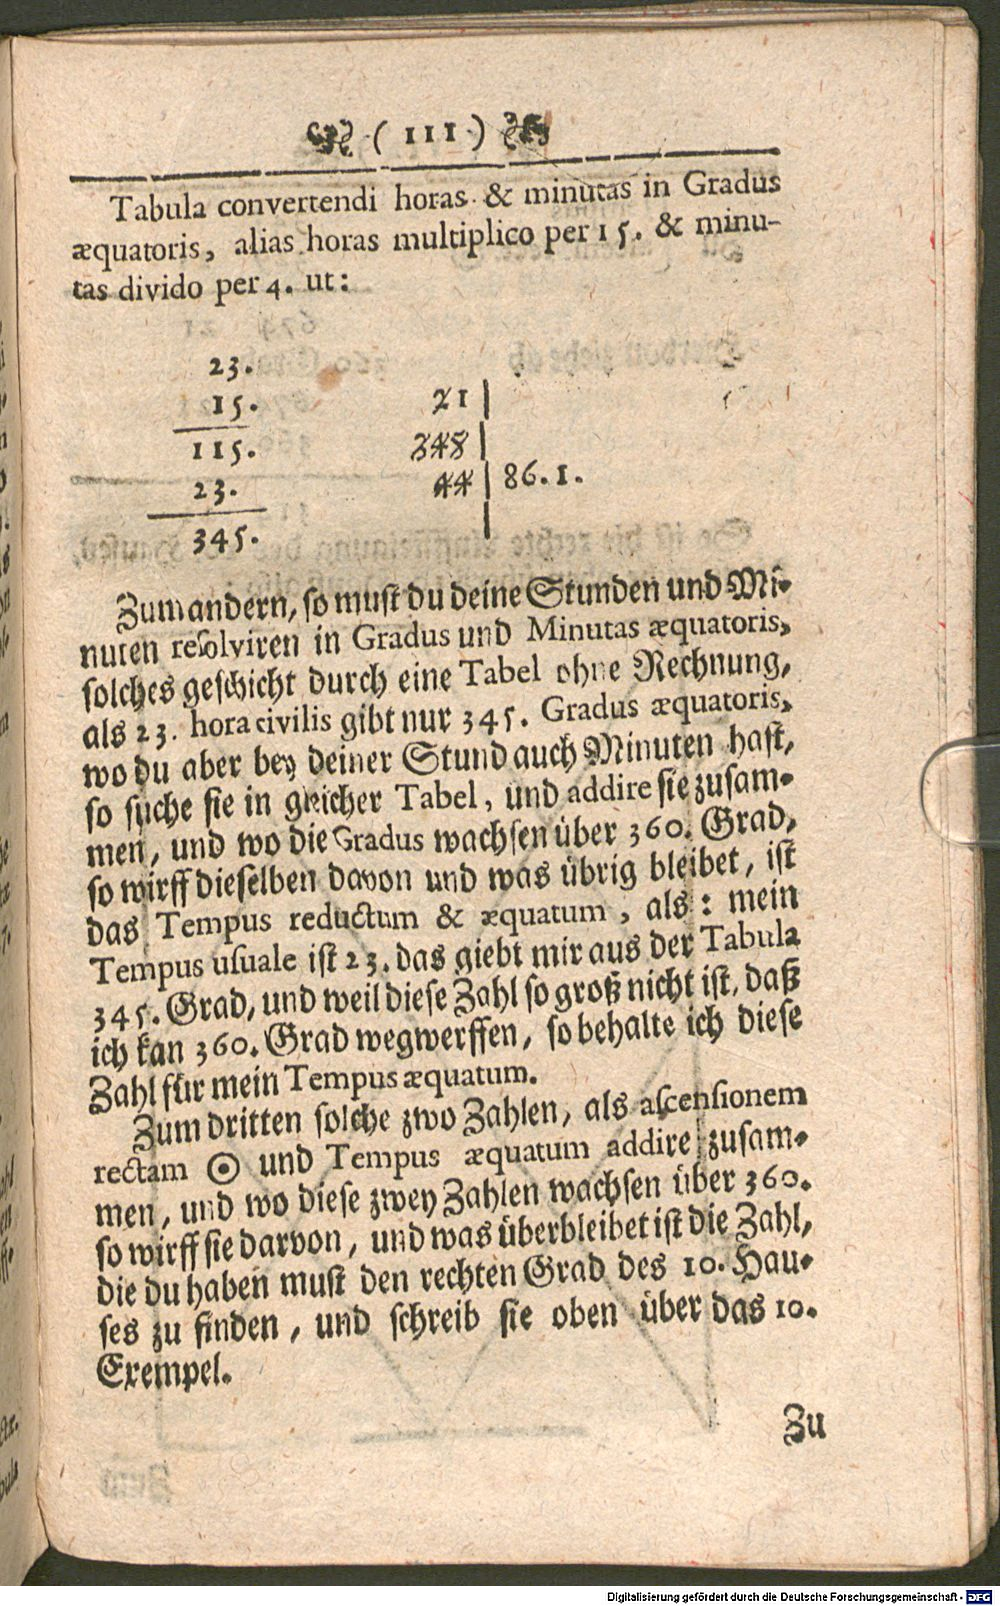 ( 111 )
Tabula convertendi horas & minutas in Gradus
æquatoris, alias horas multiplico per 15. & minu-
tas divido per 4. ut:
23.
15.
115.
23.
345.
21
348
44 | 86. 1.
Zum andern, so must du deine Stunden und Mi-
nuten resolviren in Gradus und Minutas æquatoris,
solches geschicht durch eine Tabel ohne Rechnung,
als 23. hora civilis gibt nur 345. Gradus æquatoris,
wo du aber bey deiner Stund auch Minuten hast,
so suche sie in gleicher Tabel, und addire sie zusam-
men, und wo die Gradus wachsen über 360. Grad,
so wirff dieselben davon und was übrig bleibet, ist
das Tempus reductum & æquatum, als: mein
Tempus usuale ist 23. das giebt mir aus der Tabula
345. Grad, und weil diese Zahl so groß nicht ist, daß
ich kan 360. Grad wegwerffen, so behalte ich diese
Zahl für mein Tempus æquatum.
Zum dritten solche zwo Zahlen, als ascensionem
rectam ☉ und Tempus æquatum addire zusam-
men, und wo diese zwey Zahlen wachsen über 360.
so wirff sie darvon, und was überbleibet ist die Zahl,
die du haben must den rechten Grad des 10. Hau-
ses zu finden, und schreib sie oben über das 10.
Exempel.
Zu
Digitalisierung gefördert durch die Deutsche Forschungsgemeinschaft - DFG